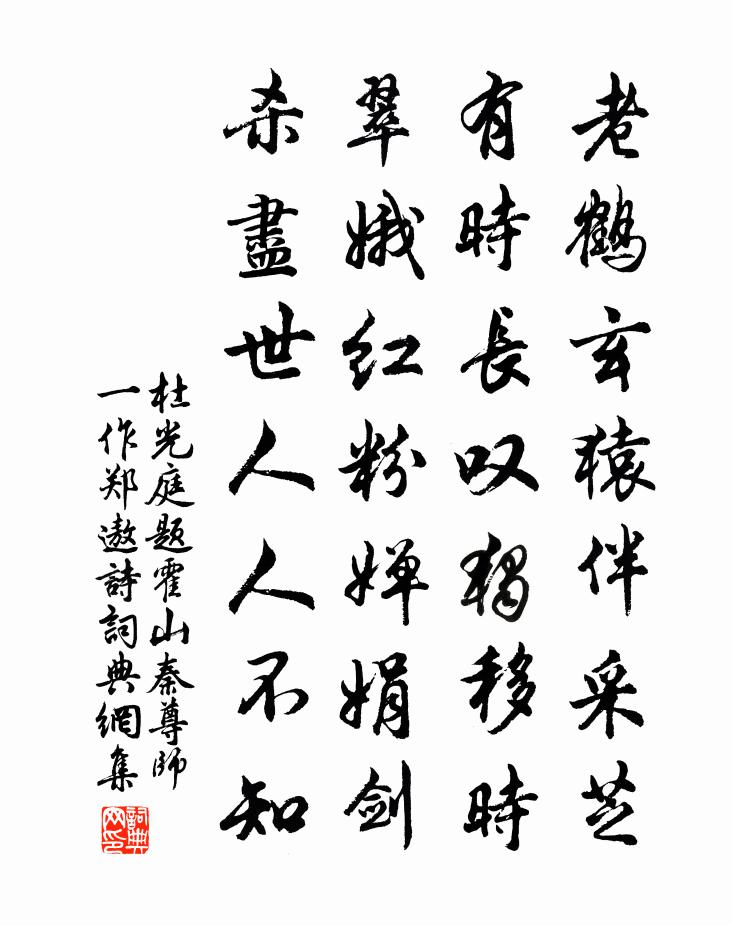 老鶴玄猿伴采芝
有時長叹獨移時
翠娥红粉婵娟剑
杀盡世人人不知
杜光庭题霍山秦尊師
一作郑遨詩詞典網集
詞典
网印